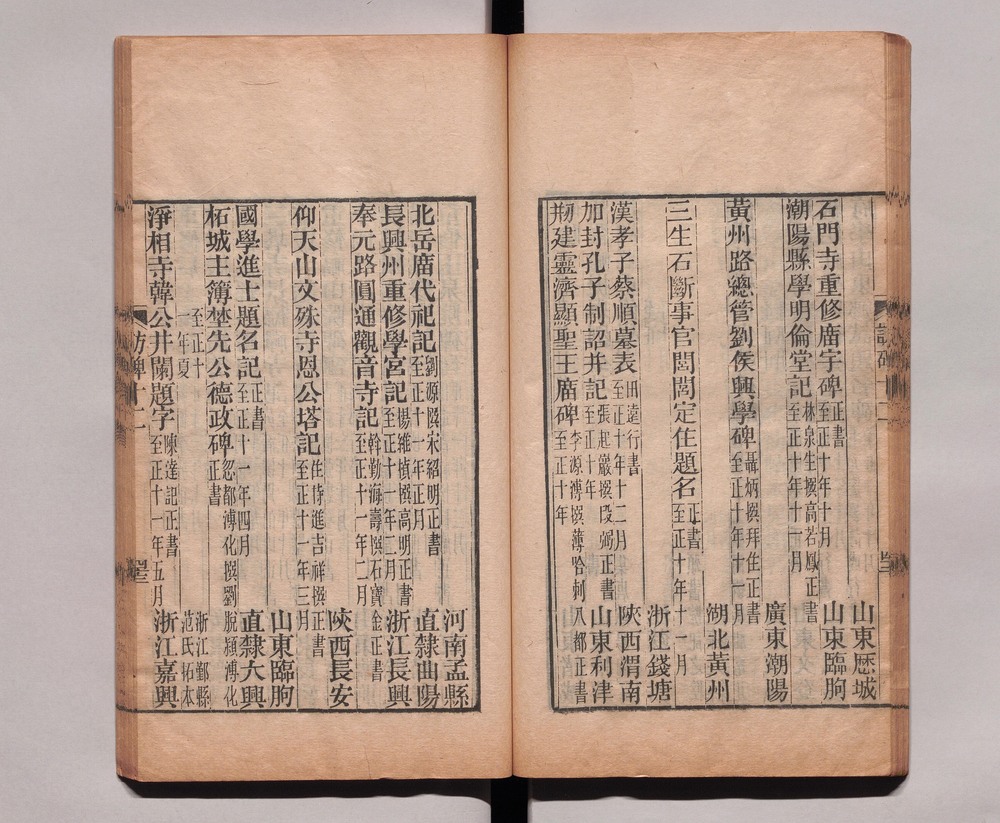 山東歷城
石門寺重修廟字碑 正書 至正十年十月 山東臨朐
潮陽縣學明倫堂記 林泉生撰高若鳳正書 至正十年十一月
廣東潮陽
黃州路總管劉侯興學碑 聶炳撰拜住正書 至正十年十一月
湖北黃州
三生石斷事官閭閭定住題名 正書 至正十年十一月
浙江錢塘
漢孝子蔡順墓表 田遠行書 至正十年十二月 陝西渭南
加封孔子制詔并記 張起巖撰段弼正書 至正十年 山東利津
剏建靈濟顯聖王廟碑 李源溥撰薄哈剌八都正書 至正十年
訪碑十二
河南孟縣
北岳廟代祀記 劉源撰宋紹明正書 至正十一年正月 直隸曲陽
長興州重修學宮記 楊維楨撰高明正書 至正十一年二月 浙江長興
奉元路圓通觀音寺記 斡勤海壽撰石寶金正書 至正十一年二月
陝西長安
仰天山文殊寺恩公塔記 住侍進吉祥撰正書 至正十一年三月
山東臨朐
國學進士題名記 正書 至正十一年四月 直隸大興
柘城主簿埜先公德政碑 忽都溥化撰劉脫潁溥化正書
至正十一年夏 浙江鄞縣范氏拓本
淨相寺韓公井闌題字 陳達記正書 至正十一年五月 浙江嘉興
訪碑十二